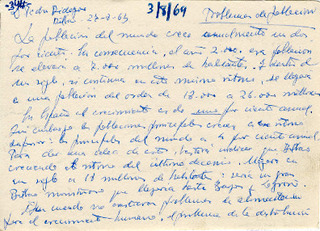 3/8/69
Problemas de población
La población del mundo crece anualmente en dos
por ciento. En consecuencia, el año 2.000 esa población
se elevará a 7.000 millones de habitantes. Y dentro de
un siglo, si continua en este mismo ritmo, se llegará
a una población del orden de 18.000 a 26.000 millones
En España el crecimiento es de uno por ciento anual.
Sin embargo las poblaciones principales crecen a
superior: las principales del mundo a por ciento anual.
Para dar una idea de esto, basta indicar que Bilbao
creciendo al ritmo del último decenio, llegará en
un siglo a 18 millones de habitantes: sería un gran
Bilbao monstruoso que llegaría hasta
cuando no existieran problemas de alimentación
para el crecimiento humano, problema de la distribución